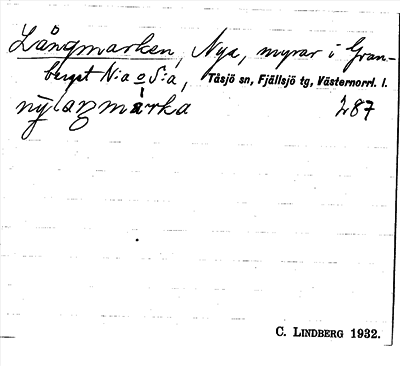 Långmarken, Nya, myrar i Gran-
berget N:a o S:a, Tåsjö sn, Fjällsjö tg, Västernorrl. l.
287
C. LINDBERG 1932.